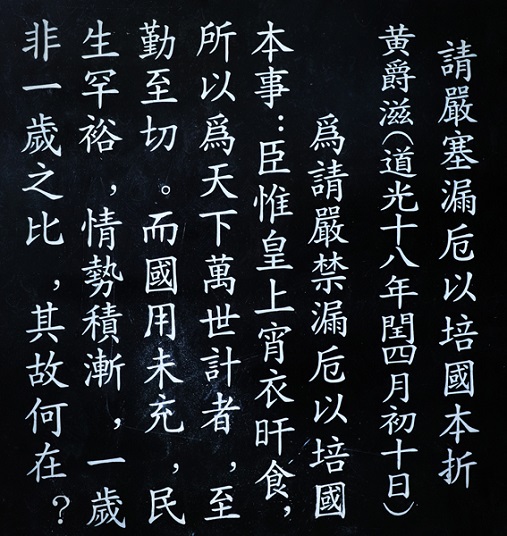 請嚴塞漏卮以培國本折
黃爵滋(道光十八年閏四月初十日)
爲請嚴禁漏卮以培國
本事:臣惟皇上宵衣旰食,
所以爲天下萬世計者,至
勤至切。而國用未充,民
生罕裕,情勢積漸,一歲
非一歲之比,其故何在?